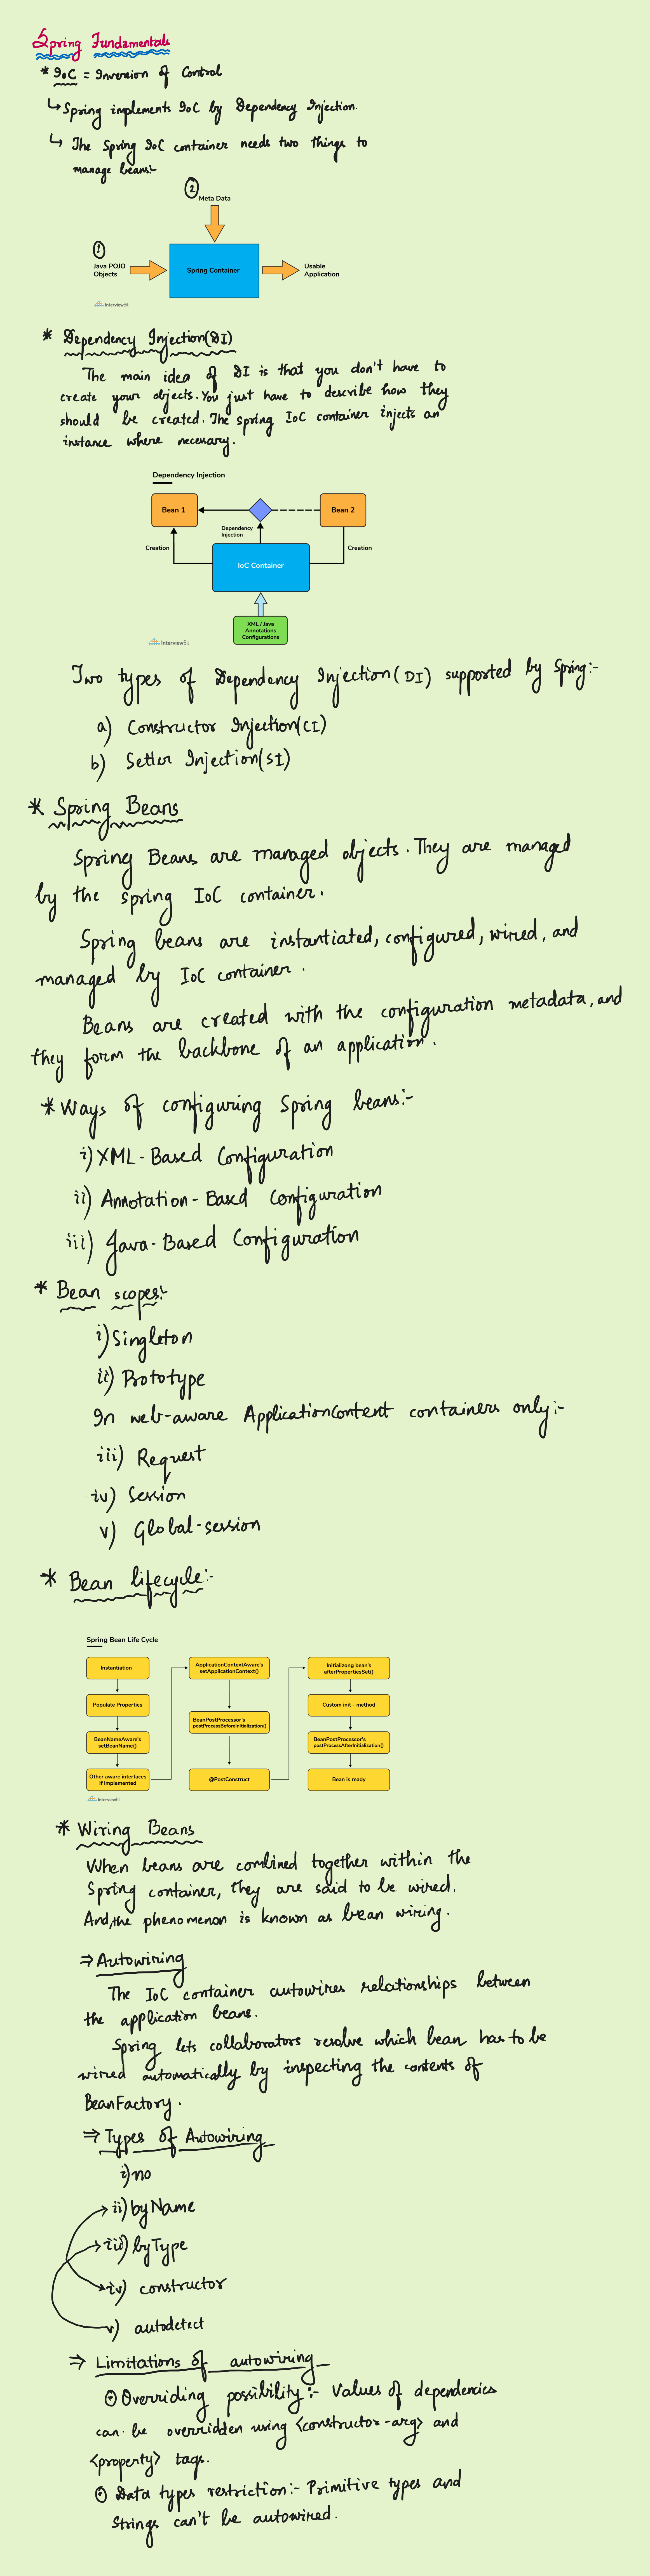 Spring Fundamentals
* IoC = Inversion of Control
↳ Spring implements IoC by Dependency Injection.
↳ The Spring IoC container needs two things to
manage beans:-
②
Meta Data
①
Java POJO
Objects
Spring Container
Usable
Application
InterviewBit
* Dependency Injection(DI)
The main idea of DI is that you don't have to
create your objects. You just have to describe how they
should be created. The spring IoC container injects an
instance where necessary.
Dependency Injection
Bean 1
Bean 2
Dependency
Injection
Creation
Creation
IoC Container
XML / Java
Annotations
Configurations
InterviewBit
Two types of Dependency Injection(DI) supported by Spring:-
a) Constructor Injection(CI)
b) Setter Injection(SI)
* Spring Beans
Spring Beans are managed objects. They are managed
by the spring IoC container.
Spring beans are instantiated, configured, wired, and
managed by IoC container.
Beans are created with the configuration metadata, and
they form the backbone of an application.
* Ways of configuring Spring beans:-
i) XML-Based Configuration
ii) Annotation-Based Configuration
iii) Java-Based Configuration
* Bean scopes:-
i) Singleton
ii) Prototype
In web-aware ApplicationContent containers only:-
iii) Request
iv) Session
v) Global-session
* Bean lifecycle:-
Spring Bean Life Cycle
Instantiation
Populate Properties
BeanNameAware's
setBeanName()
Other aware interfaces
if implemented
ApplicationContextAware's
setApplicationContext()
BeanPostProcessor's
postProcessBeforeInitialization()
@PostConstruct
Initializong bean's
afterPropertiesSet()
Custom init - method
BeanPostProcessor's
postProcessAfterInitialization()
Bean is ready
InterviewBit
* Wiring Beans
When beans are combined together within the
Spring container, they are said to be wired.
And, the phenomenon is known as bean wiring.
⇒ Autowiring
The IoC container autowires relationships between
the application beans.
Spring lets collaborators resolve which bean has to be
wired automatically by inspecting the contents of
BeanFactory.
⇒ Types of Autowiring
i) no
ii) byName
iii) byType
iv) constructor
v) autodetect
⇒ Limitations of autowiring
⊙ Overriding possibility:- Values of dependencies
can be overridden using <constructor-arg> and
<property> tags.
⊙ Data types restriction:- Primitive types and
Strings can't be autowired.